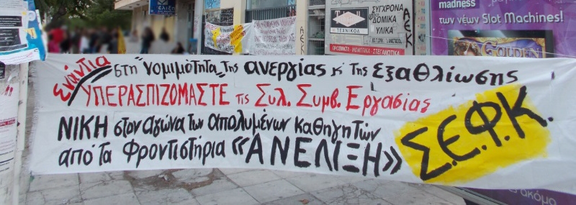 madness
των νέων Slot Machines!
ΣΥΓΧΡΟΝΑ
ΔΟΜΙΚΑ
ΥΛΙΚΑ
Ενάντια στη "νομιμότητα" της ανεργίας κ' της εξαθλίωσης
ΥΠΕΡΑΣΠΙΖΟΜΑΣΤΕ τις Συλ. Συμβ. Εργασίας
ΝΙΚΗ στον αγώνα των απολυμένων καθηγητών
από τα Φροντιστήρια «ΑΝΕΛΙΞΗ»
Σ.Ε.Φ.Κ.
ακόμα